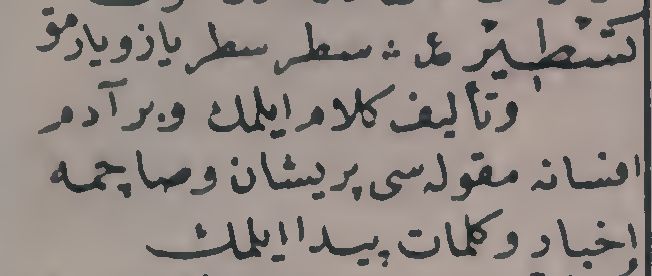 تسطير ع ؞ سطر سطر يازو يازمق
وتأليف كلام ايلمك وبر آدم
افسانه مقوله سى پريشان وصاچمه
اخبار وكلمات پيدا ايلمك